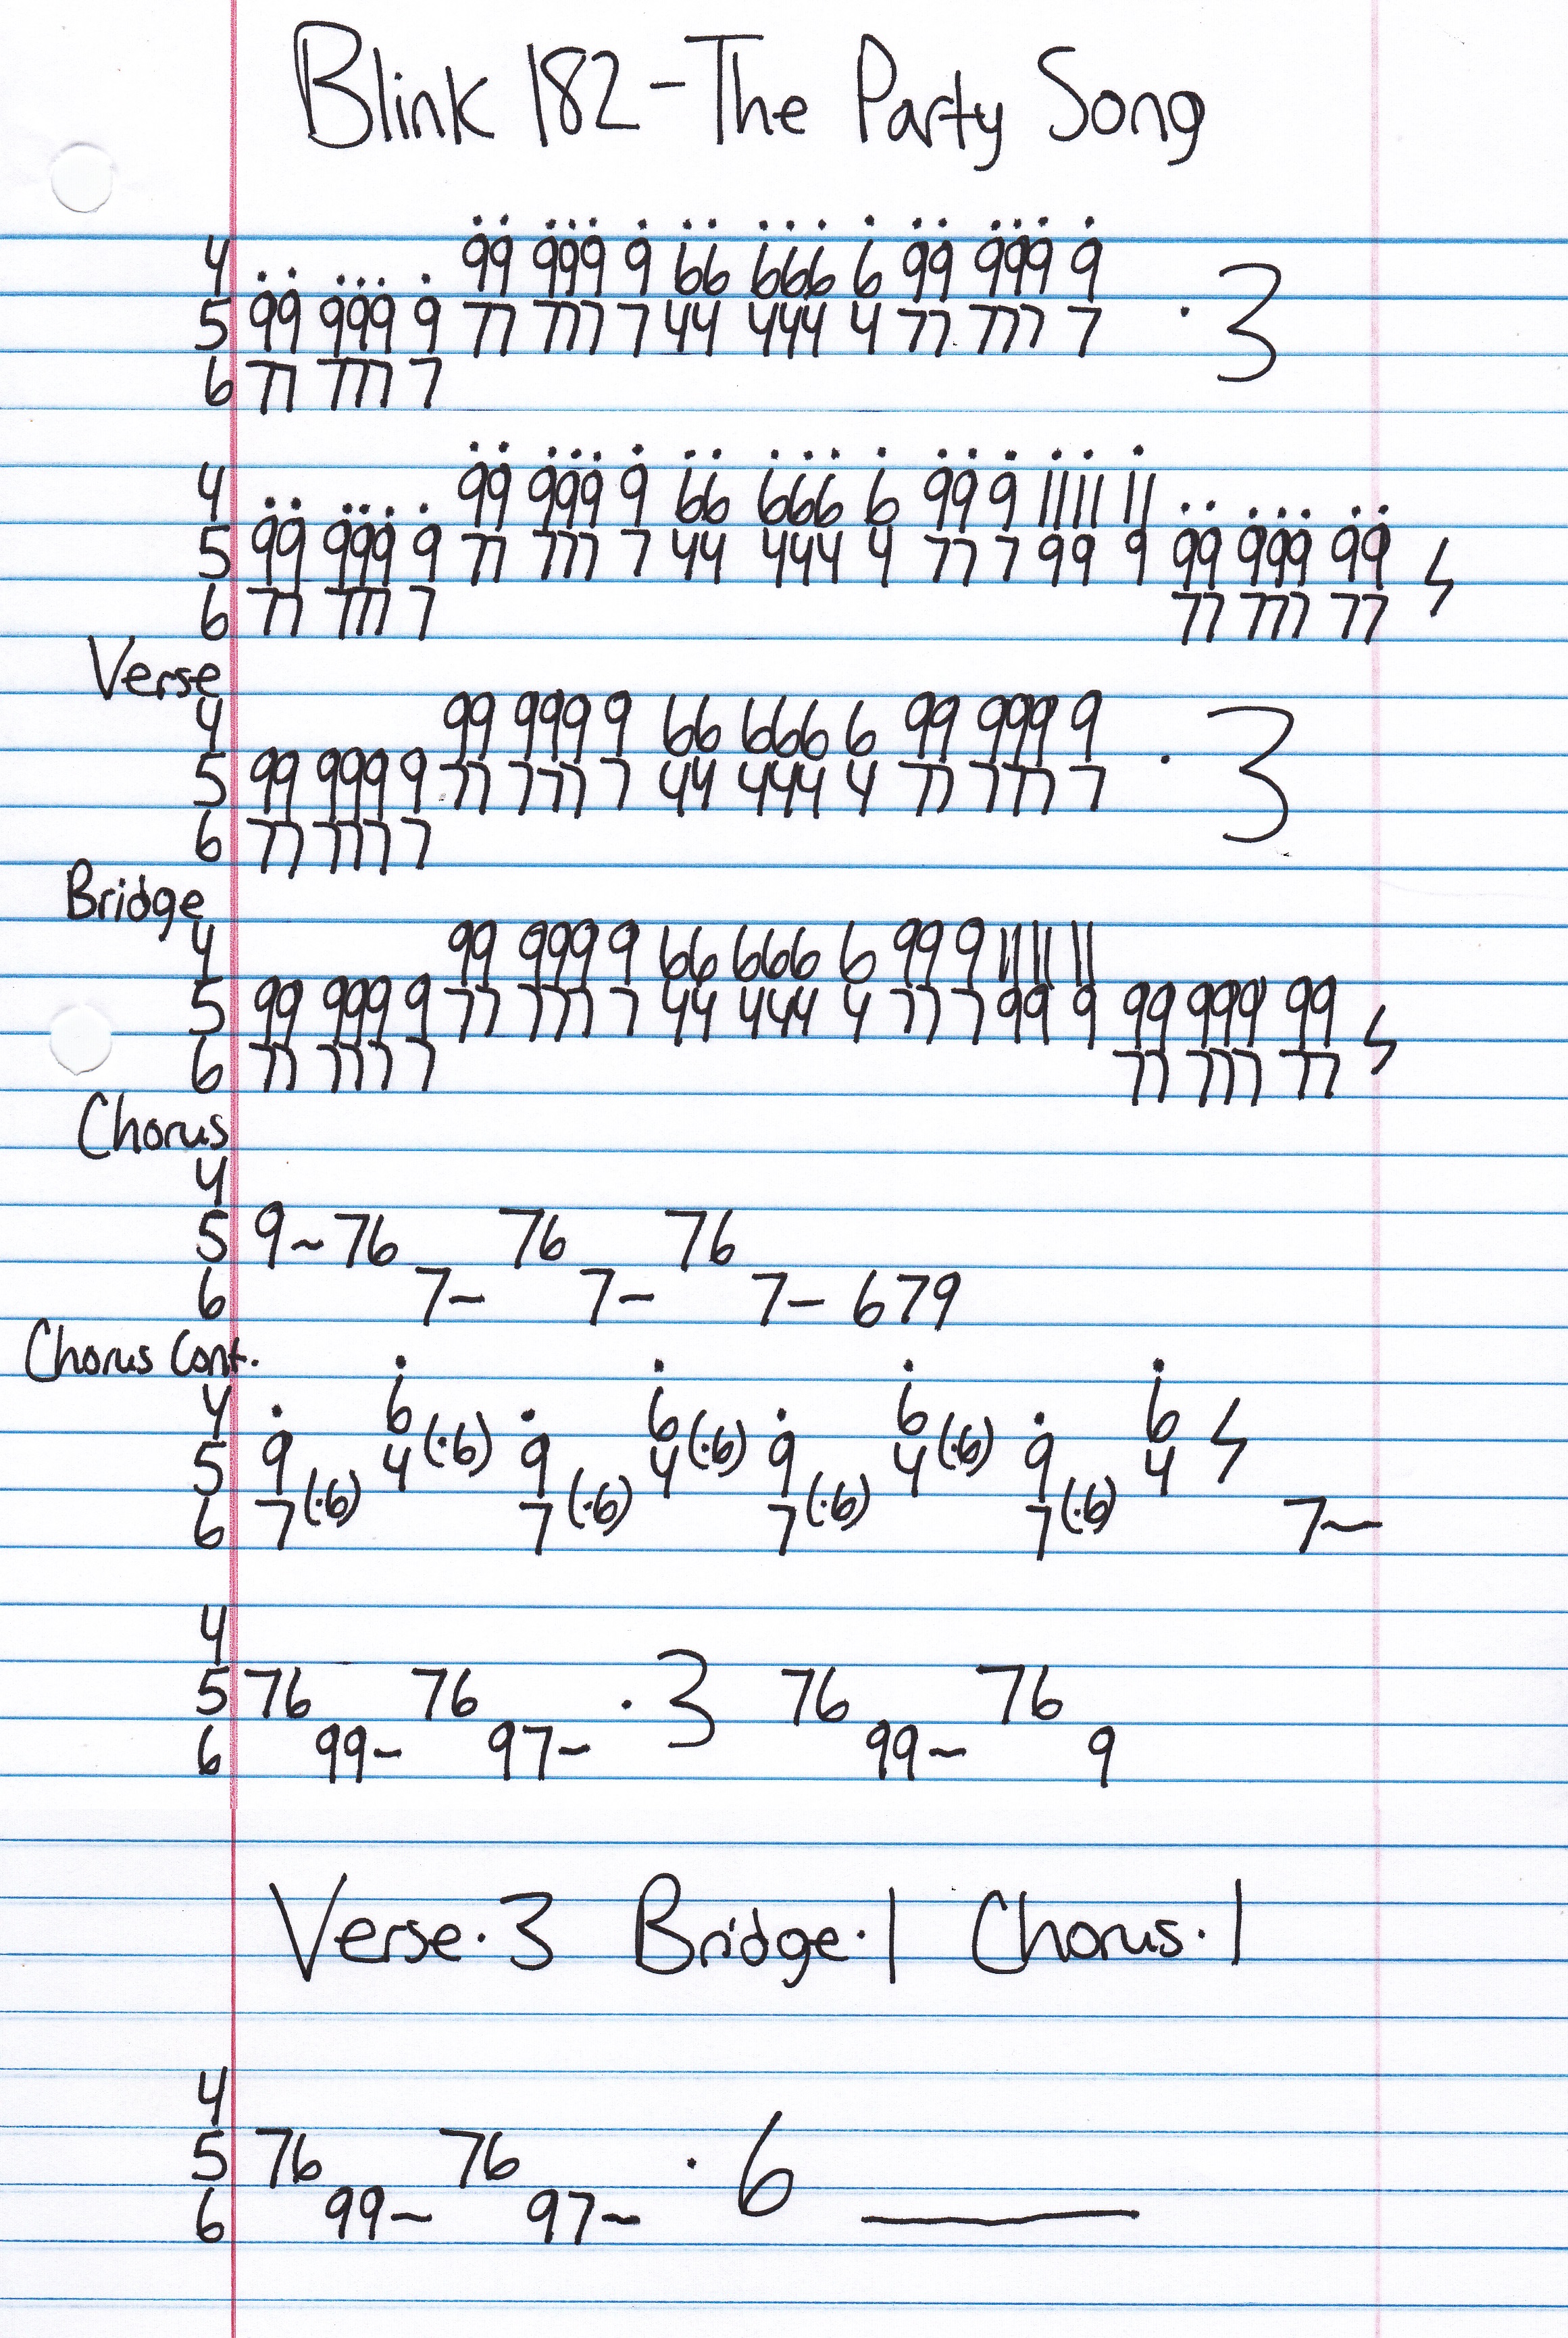 Blink 182 - The Party Song
4 99 999 9 66 666 6 99 999 9
5 99 999 9 77 777 7 44 444 4 77 777 7 · 3
6 77 777 7
4 99 999 9 66 666 6 99 9 11 11 11
5 99 999 9 77 777 7 44 444 4 77 7 99 9 99 999 99
6 77 777 7 77 777 77
Verse
4 99 999 9 66 666 6 99 999 9
5 99 999 9 77 777 7 44 444 4 77 777 7 · 3
6 77 777 7
Bridge
4 99 999 9 66 666 6 99 9 11 11 11
5 99 999 9 77 777 7 44 444 4 77 7 99 9 99 999 99
6 77 777 7 77 777 77
Chorus
4
5 9~76 76 76
6 7- 7- 7- 679
Chorus Cont.
4 6 6 6 6
5 9 4(·6) 9 4(·6) 9 4(·6) 9 4
6 7(·6) 7(·6) 7(·6) 7(·6) 7~
4
5 76 76 · 3 76 76
6 99~ 97~ 99~ 9
Verse·3 Bridge·1 Chorus·1
4
5 76 76 · 6
6 99~ 97~